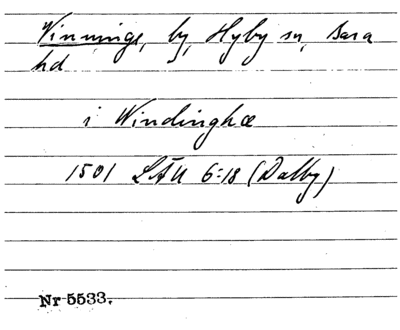 Vinninge, by, Hyby sn, Bara
hd
i Windinghæ
1501 LÄU 6:18 (Dalby)
Nr 5533.